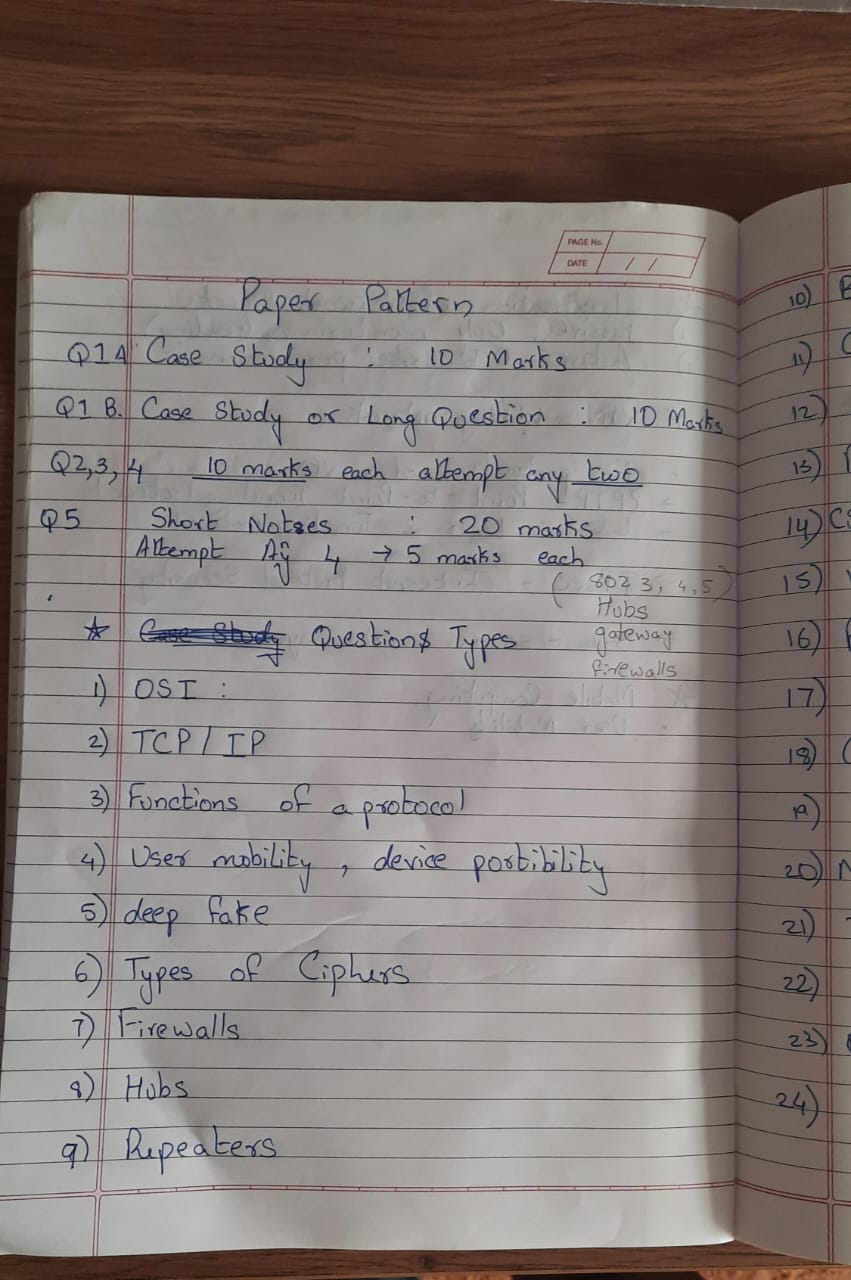 PAGE No.
DATE / /
Paper Pattern
Q1A Case Study : 10 Marks
Q1 B. Case Study or Long Question : 10 Marks
Q2,3,4 10 marks each attempt any two
Q5 Short Notses : 20 marks
Attempt Ay 4 → 5 marks each
( 802 3, 4, 5 )
Hubs
☆ Case Study Questions Types
gateway
firewalls
1) OSI :
2) TCP / IP
3) Functions of a protocol
4) User mobility, device portibility
5) deep fake
6) Types of Ciphers
7) Firewalls
8) Hubs
9) Repeaters
10)
11)
12)
13)
14)
15)
16)
17)
18)
19)
20)
21)
22)
23)
24)